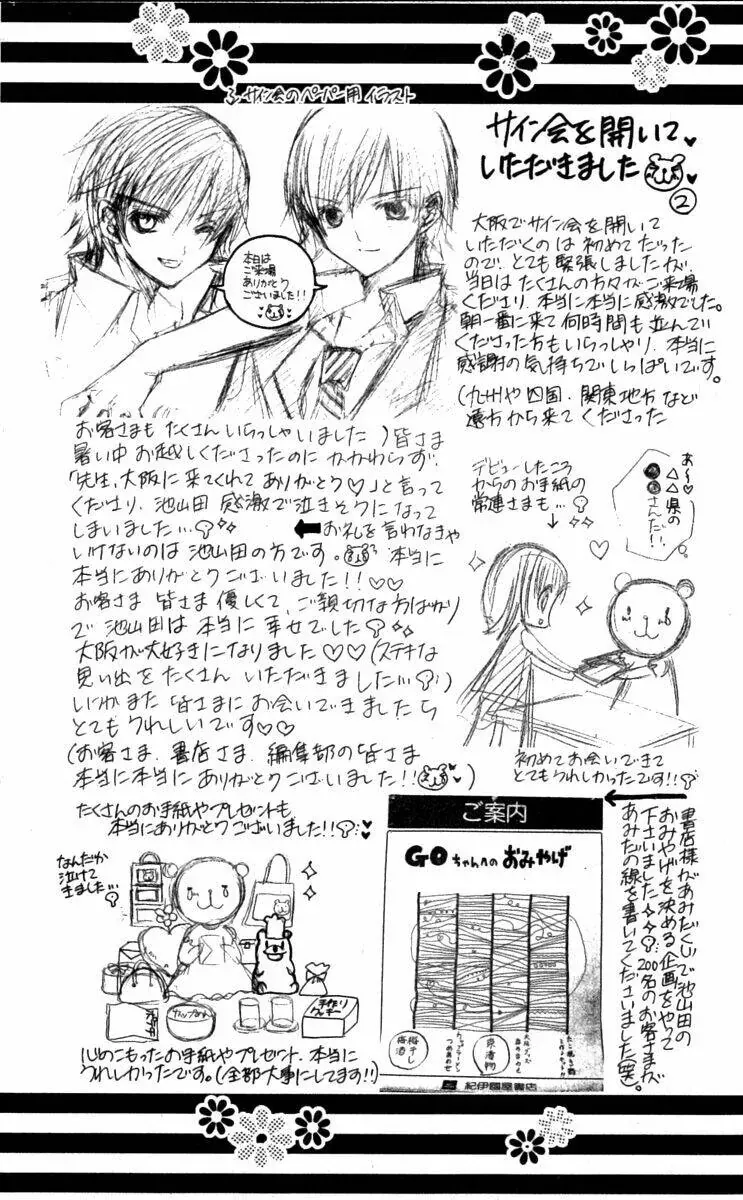 サイン会のペーパー用イラスト
サイン会を開いて
いただきました
②
本日は
ご来場
ありがとう
ございました!!
大阪でサイン会を開いて
いただくのは初めてだった
ので、とても緊張しましたが、
当日はたくさんの方々がご来場
くださり、本当に本当に感激でした。
朝一番に来て何時間も並んで
くださった方もいらっしゃり、本当に
感謝の気持ちでいっぱいです。
(九州や四国、関東地方など
遠方から来てくださった
お客さまもたくさんいらっしゃいました)皆さま
暑い中お越しくださったのにかかわらず、
「先生、大阪に来てくれてありがとう♡」と言って
くださり、池山田感激で泣きそうになって
しまいました…
←お礼を言わなきゃ
いけないのは池山田の方です。本当に
本当にありがとうございました!!♡♡
お客さま皆さま優しくて、ご親切な方ばかり
で池山田は本当に幸せでした
大阪が大好きになりました♡♡(ステキな
思い出をたくさんいただきました…)
いつかまた皆さまにお会いできましたら
とてもうれしいです♡♡
(お客さま、書店さま、編集部の皆さま
本当に本当にありがとうございました!!)
デビューしたころ
からのお手紙の
常連さまも…
↓
あ〜♡
△△県の
●●さんだ!!
初めてお会いできて
とてもうれしかったです!!
たくさんのお手紙やプレゼントも
本当にありがとうございました!!
なんだか
泣けて
きました…
カップめん
手作り
クッキー
心のこもったお手紙やプレゼント、本当に
うれしかったです。(全部大事にしてます!!)
ご案内
GOちゃんへのおみやげ
梅干し
梅酒
つめあわせ
京漬物
大阪グッズ
紀伊國屋書店
書店様があみだくじで池山田の
おみやげを決める企画をやって
下さいました
200名のお客さまが
あみだの線を書いてくださいました(笑)。